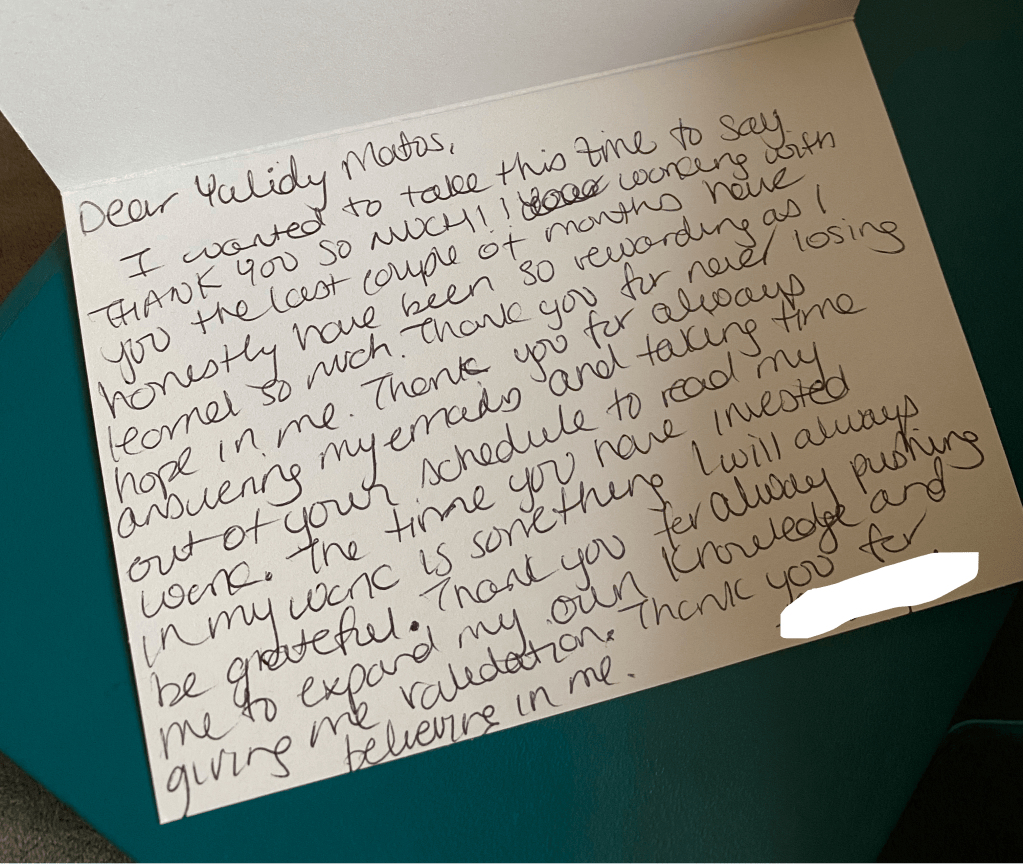 Dear Yalidy Matos,
I wanted to take this time to say
THANK YOU SO MUCH!! working with
you the last couple of months have
honestly have been so rewarding as I
learned so much. Thank you for never losing
hope in me. Thank you for always
answering my emails and taking time
out of your schedule to read my
work. The time you have invested
in my work is something I will always
be grateful. Thank you for alway pushing
me to expand my own knowledge and
giving me validation. Thank you for
believing in me.